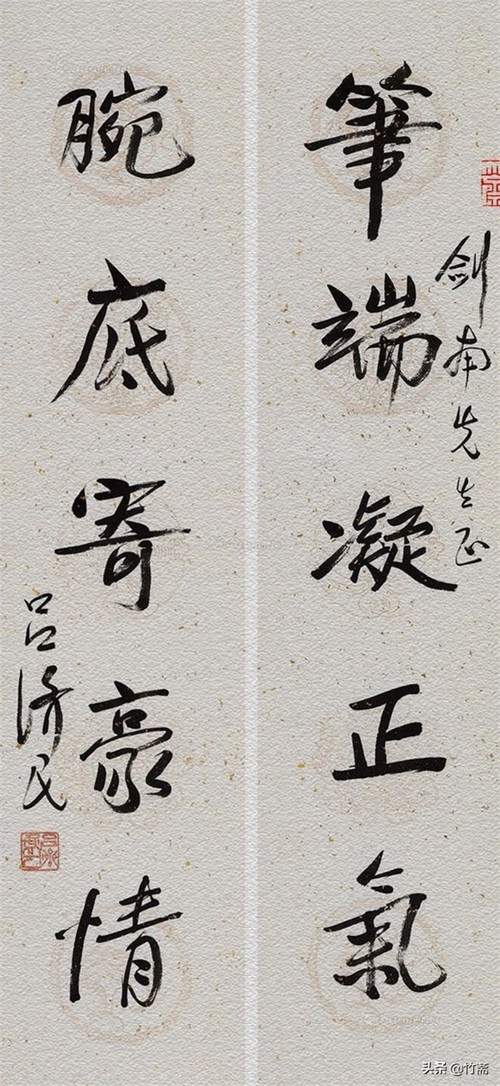 筆端凝正氣
劍南先生正
腕底寄豪情
吕济民
头条 @竹斋